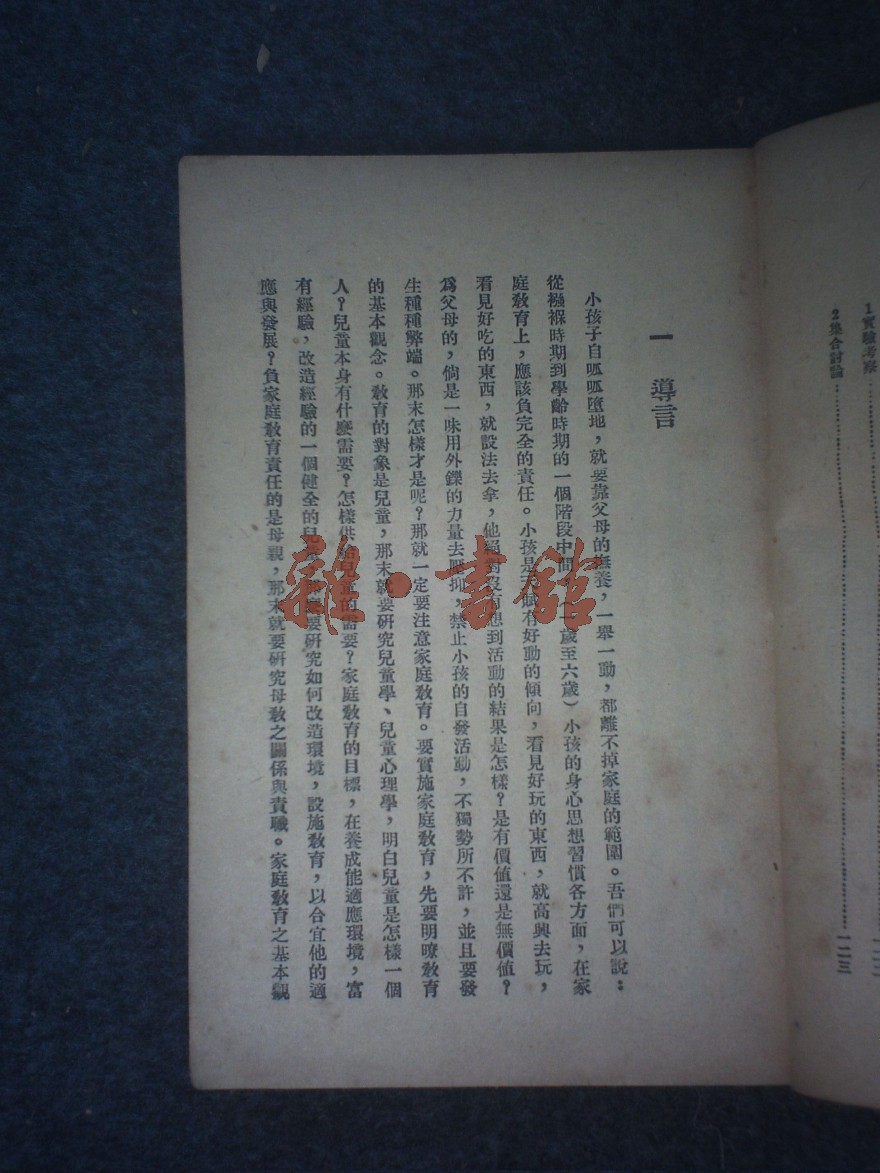 1 實驗考察
2 集合討論……一二三
一 導言
小孩子自呱呱墮地，就要靠父母的撫養，一舉一動，都離不掉家庭的範圍。吾們可以說：
從襁褓時期到學齡時期的一個階段中間，（一歲至六歲）小孩的身心思想習慣各方面，在家
庭敎育上，應該負完全的責任。小孩是天賦有好動的傾向，看見好玩的東西，就高興去玩，
看見好吃的東西，就設法去拿，他絕對沒有想到活動的結果是怎樣？是有價值還是無價值？
爲父母的，倘是一味用外鑠的力量去壓抑，禁止小孩的自發活動，不獨勢所不許，並且要發
生種種弊端。那末怎樣才是呢？那就一定要注意家庭敎育。要實施家庭敎育，先要明瞭敎育
的基本觀念。敎育的對象是兒童，那末就要研究兒童學、兒童心理學，明白兒童是怎樣一個
人？兒童本身有什麽需要？怎樣供給兒童的需要？家庭敎育的目標，在養成能適應環境，富
有經驗，改造經驗的一個健全的兒童，那麽要研究如何改造環境，設施敎育，以合宜他的適
應與發展？負家庭敎育責任的是母親，那末就要研究母敎之關係與責職。家庭敎育之基本觀
雜·書館